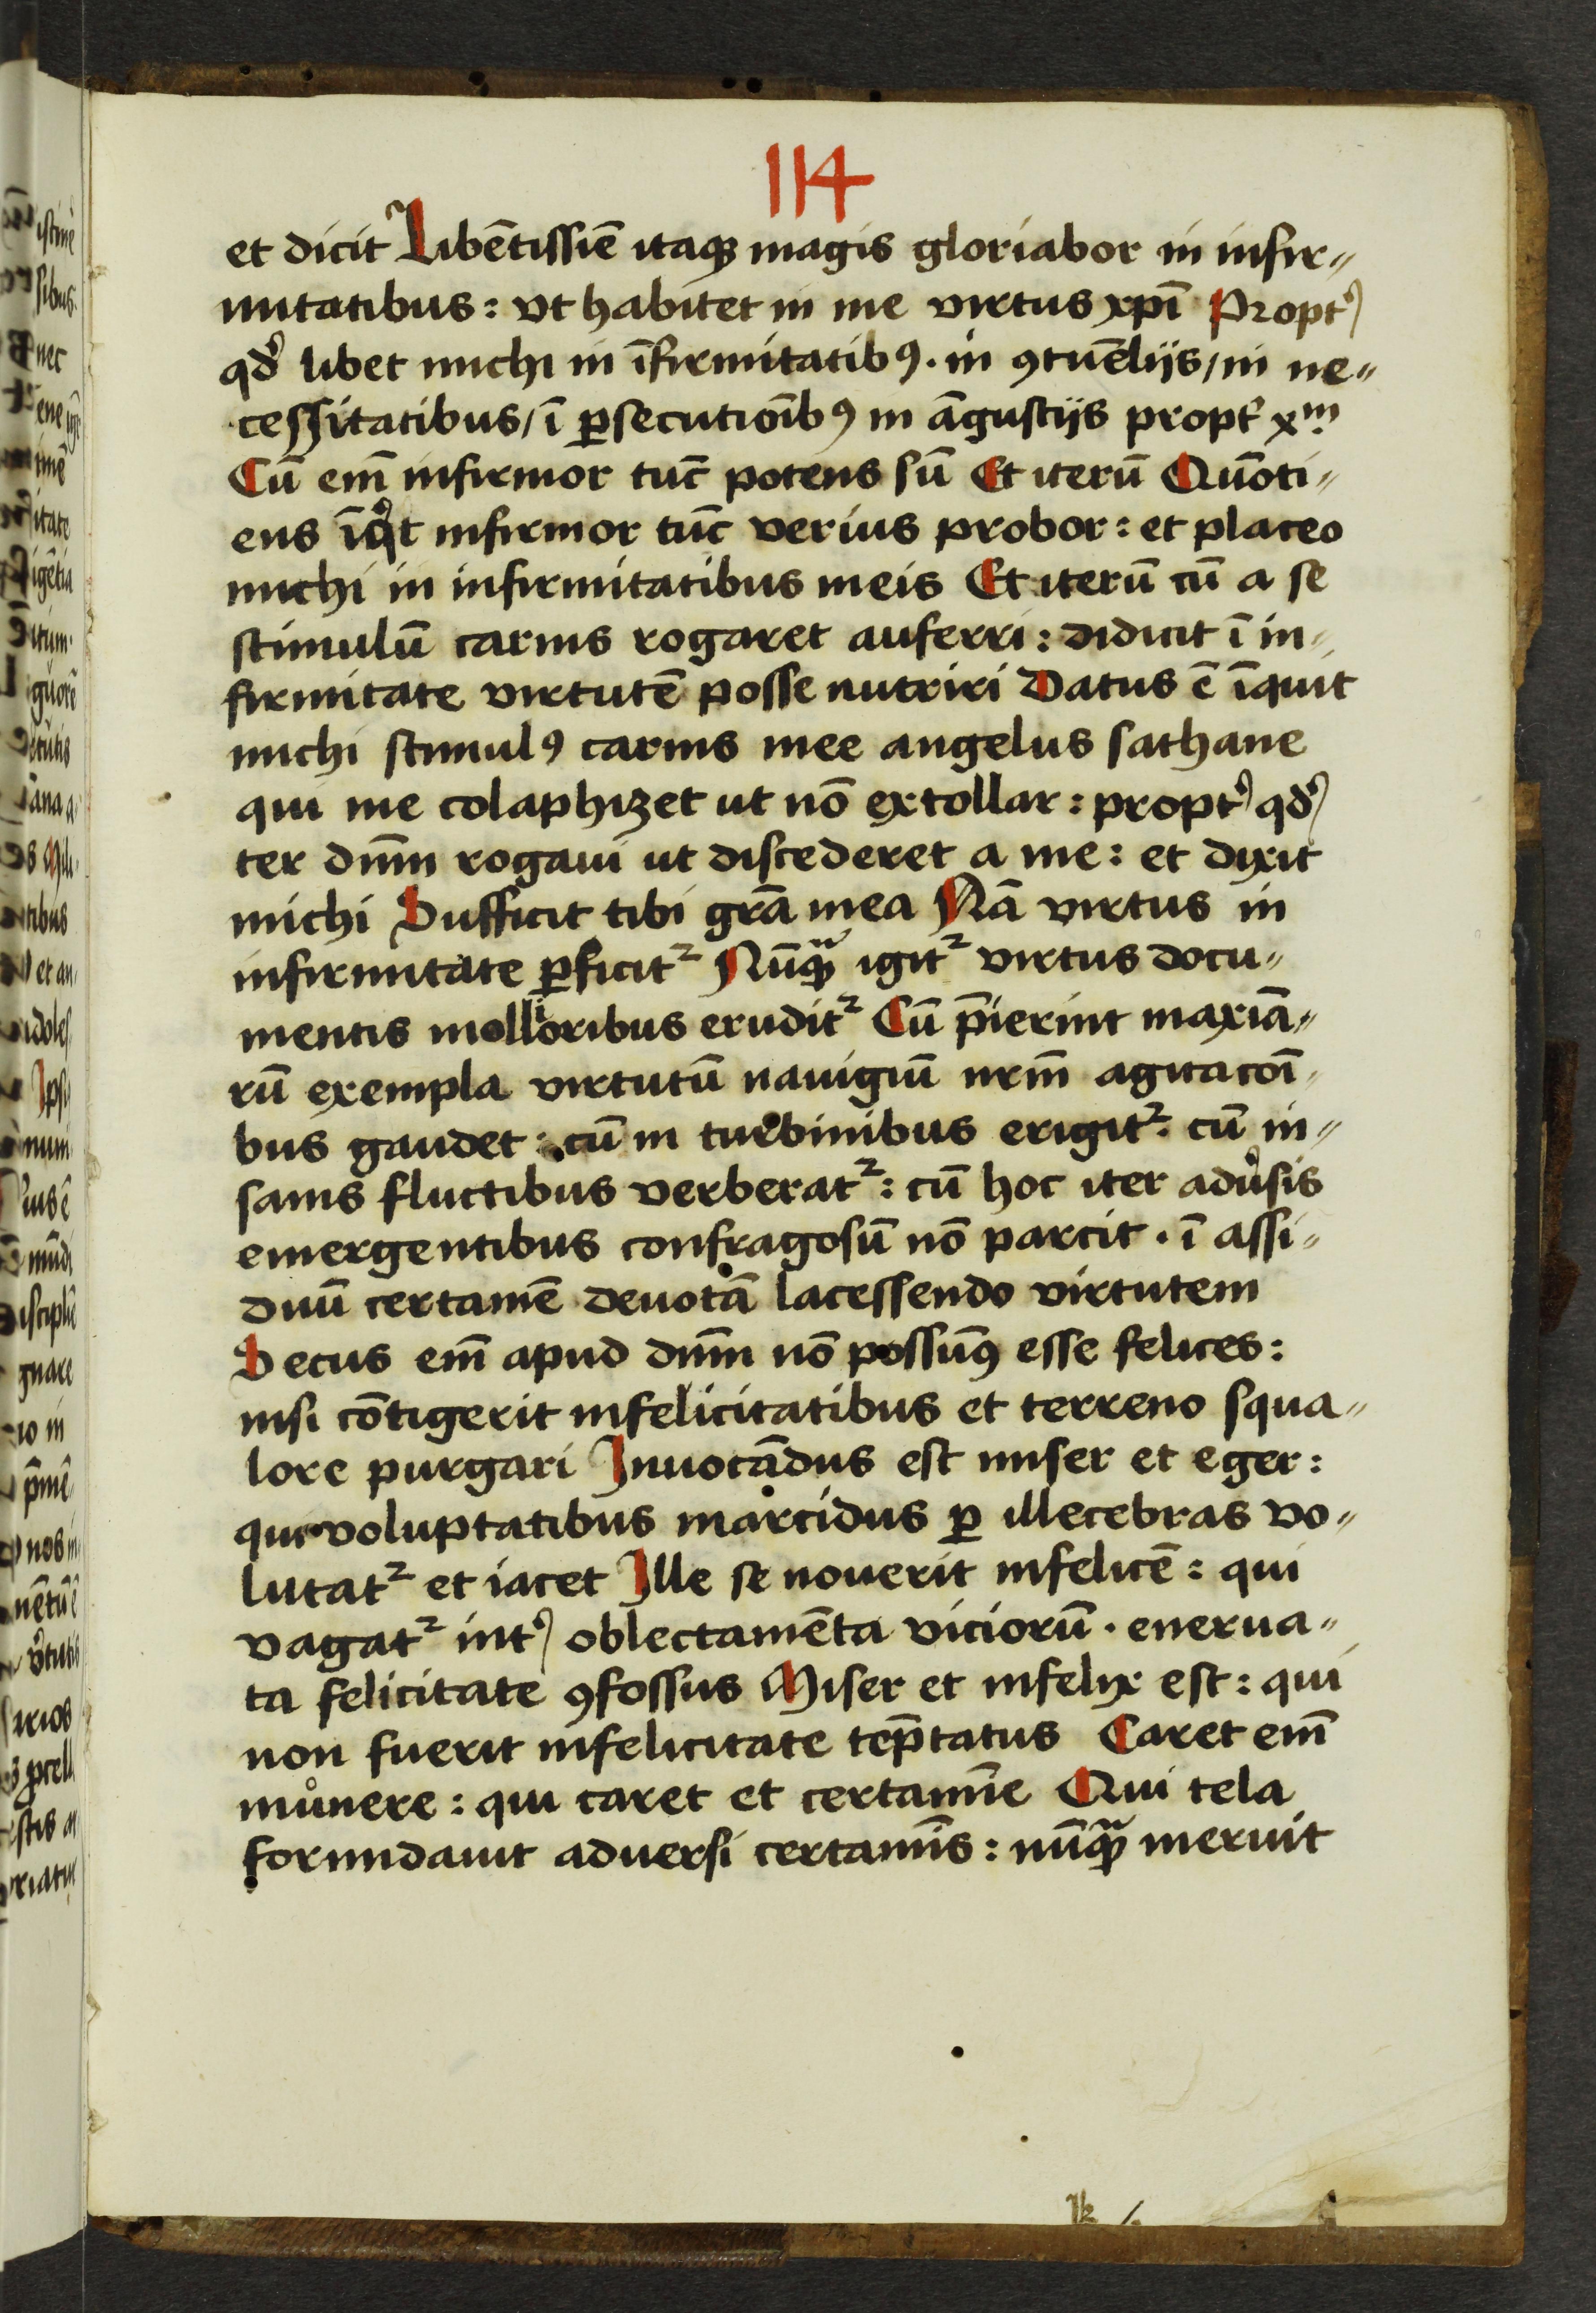 114
et dicit Libētissiē itaqꝫ magis gloriabor in infir〃
mitatibus : vt habitet in me virtus xpī Propt᾿
qd᾿ libet michi in īfirmitatibꝰ . in ꝯtuēliis / in ne〃
cessitatibus / ī ꝑsecutioībꝰ in āgustijs propt᾿ xᵐ
Cū em̄ infirmor tūc potens sū Et iterū Quoti〃
ens īqͥt infirmor tūc verius probor : et placeo
michi in infirmitatibus meis Et iterū cū a se
stimulū carnis rogaret auferri : didicit ī in〃
firmitate virtutē posse nutriri Datus ē īquit
michi stimulꝰ carnis mee angelus sathane
qui me colaphizet ut nō extollar : propt᾿ qd᾿
ter dn̄m rogaui ut discederet a me : et dixit
michi Sufficit tibi gr̄a mea Nā virtus in
infirmitate ꝑficit² Nūqͣꝫ igit² virtus docu〃
mentis mollioribus erudit² Cū p̄ierint maxiā〃
rū exempla virtutū nauigiū nr̄m agitacōi〃
bus gaudet : cū in turbinibus erigit² . cū in〃
sanis fluctibus verberat² : cū hoc iter adu᾿sis
emergentibus confragosū nō parcit . ī assi〃
duū certamē deuotā lacessendo virtutem
Secus em̄ apud dn̄m nō possumꝰ esse felices :
nisi cōtigerit infelicitatibus et terreno squa〃
lore purgari Inuocādus est miser et eger :
qui voluptatibus marcidus ꝑ illecebras vo〃
lutat² et iacet Ille se nouerit infelicē : qui
vagat² int᾿ oblectamēta viciorū . enerua〃
ta felicitate ꝯfossus Miser et infelix est : qui
non fuerit infelicitate tēp̄tatus Caret em̄
mu̇nere : qui caret et certamīe Qui tela
formidauit aduersi certamīs : nūqͣꝫ meruit